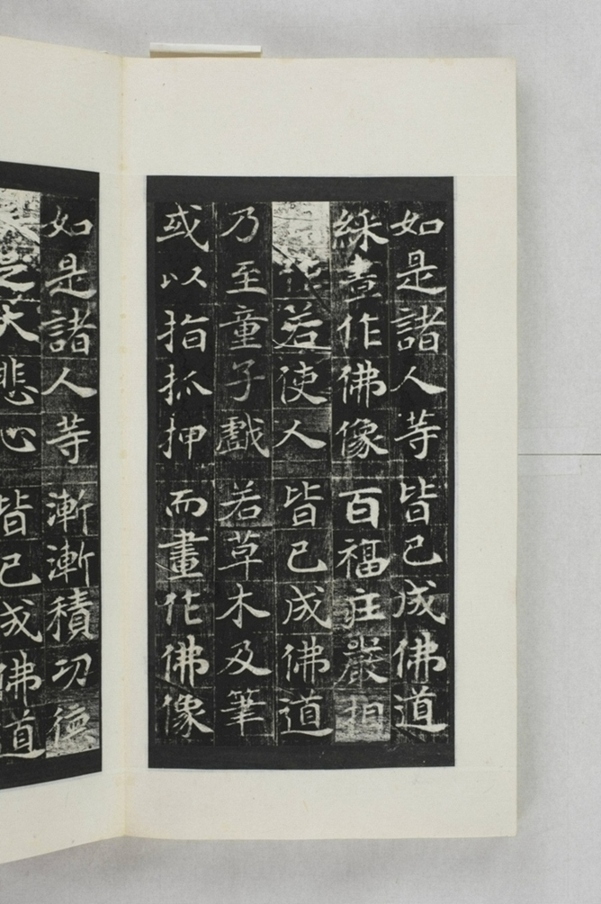 如是諸人等 皆已成佛道
綵畫作佛像 百福莊嚴相
若使人 皆已成佛道
乃至童子戲 若草木及筆
或以指抓押 而畫作佛像
如是諸人等 漸漸積功德
大悲心 皆已成佛道